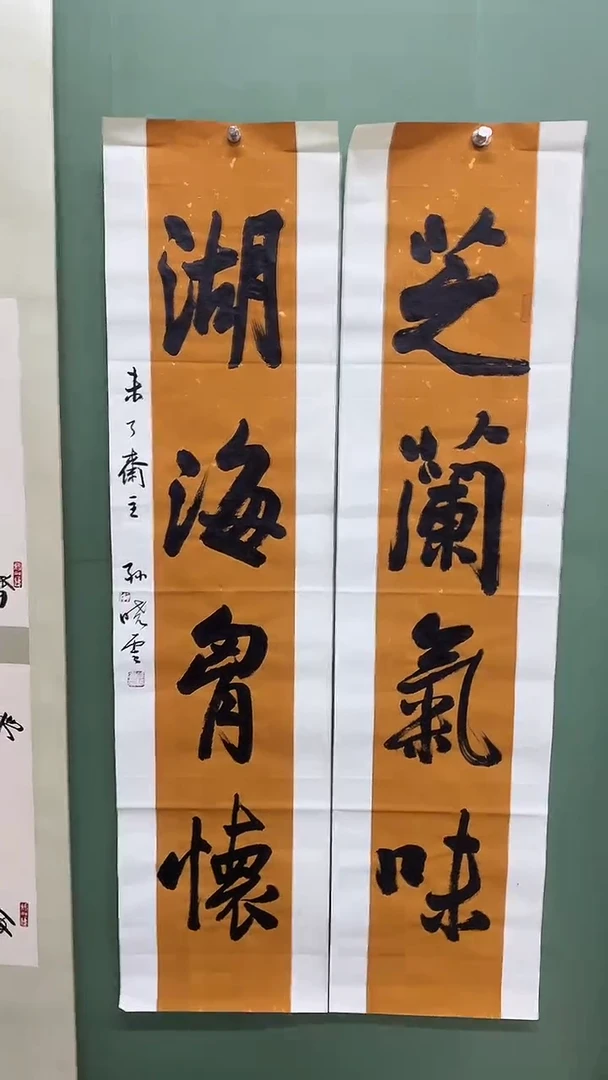 芝蘭氣味
湖海胷懷
未了齋主 孙晓雲